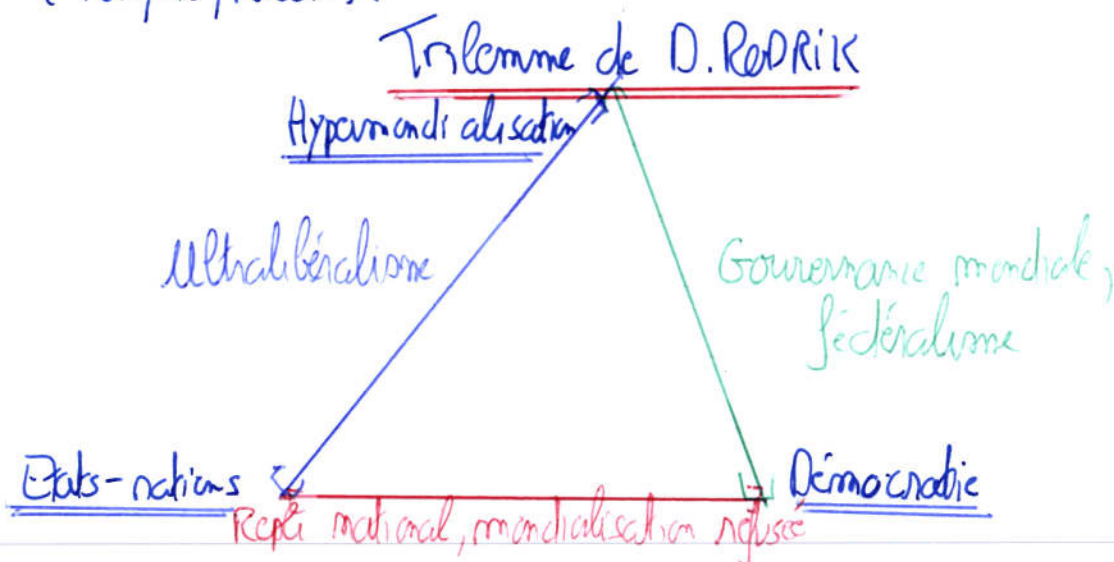 Trilemme de D. RODRIK
Hypermondialisation
Ultralibéralisme
Gouvernance mondiale,
fédéralisme
Etats-nations
Démocratie
Repli national, mondialisation refusée